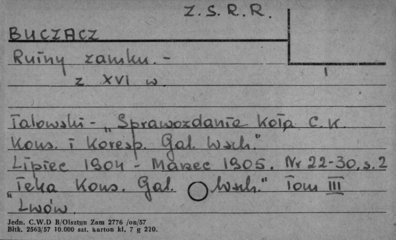 Z.S.R.R.
BUCZACZ
Ruiny zamku.-
z XVI w.
Talowski - „Sprawozdanie Koła C.K.
Kons. i Koresp. Gal. Wsch."
Lipiec 1904 - Marzec 1905. Nr 22-30, s. 2
„Teka Kons. Gal. Wsch." Tom III
Lwów.
Jedn. C.W.D B/Olsztyn Zam 2776 /on/57
Bltk. 2563/57 10.000 szt. karton kl. 7 g 220.